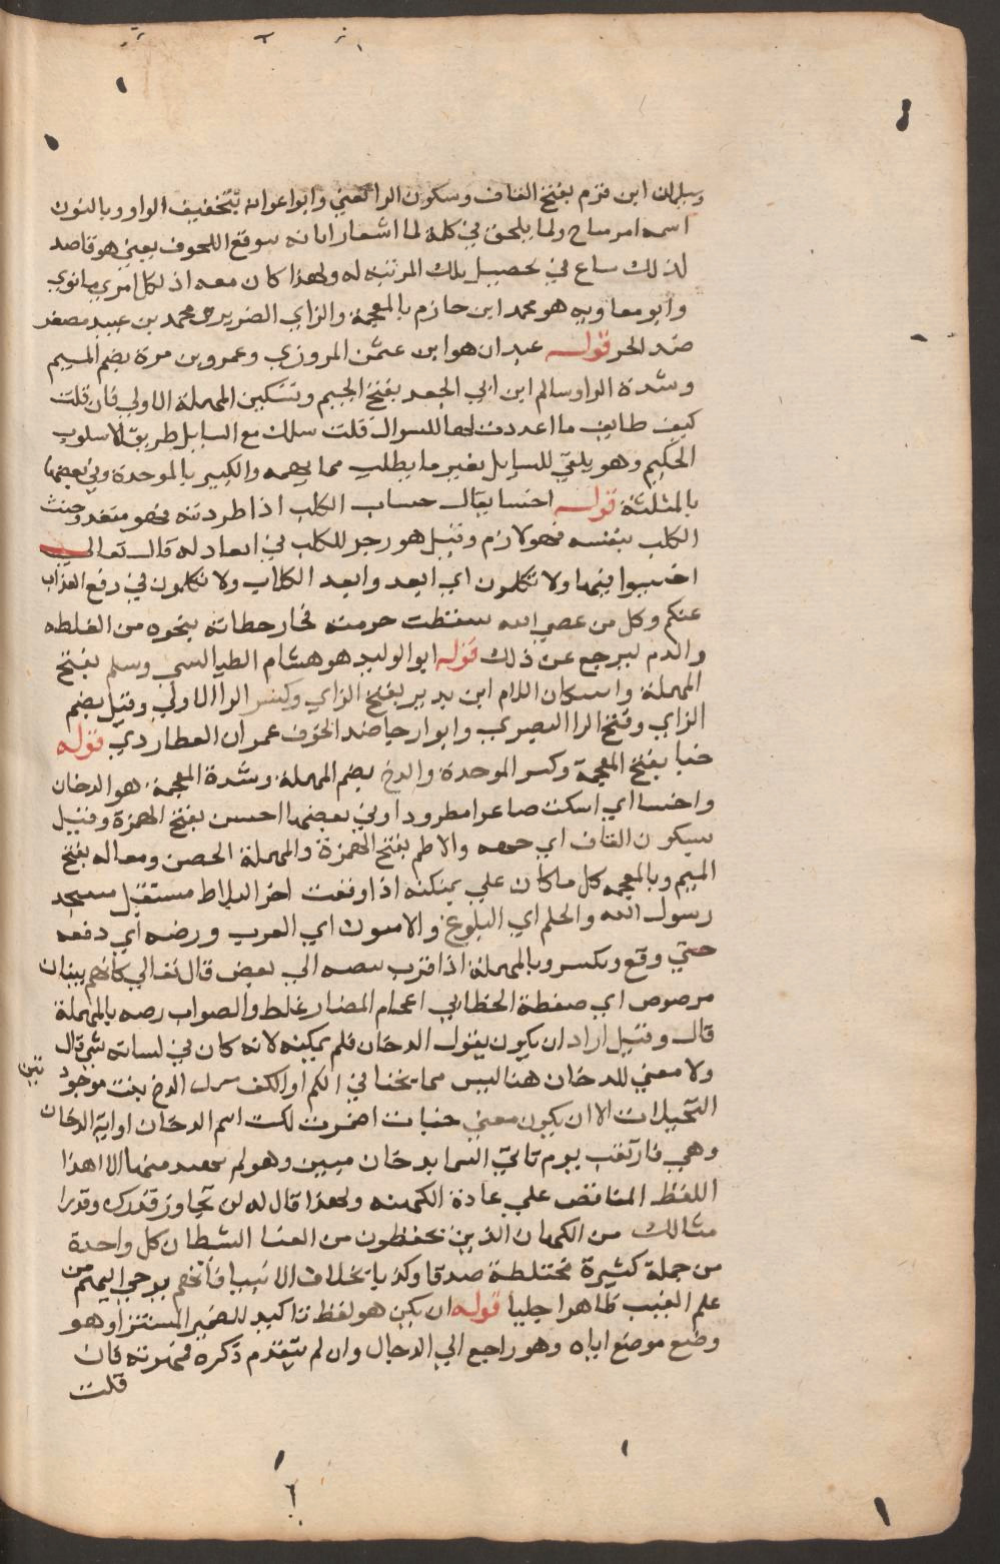 وسليمان ابن قرم بفتح القاف وسكون الرا الضبي وابوا عوانه بتخفيف الواو وبالنون
اسمه ولما يلحق في كلمة لما اشعار بانه يتوقع اللحوق يعني هو قاصد
لذلك ساع في تحصيل تلك المرتبه له ولهذا كان معه اذ لكل امري ما نوي
وابو معاويه هو محمد ابن حازم بالمعجمة والزاي الضرير محمد بن عبيد مصغر
ضد الحر قوله عبدان هو ابن عثمن المروزي وعمرو بن مرة بضم الميم
وشدة الرا وسالم ابن ابي الجعد بفتح الجيم وتسكين المهملة الاولي فان قلت
كيف طابق ما اعددت لها للسوال قلت سلك مع السايل طريق الاسلوب
الحكيم وهو يلقي للسايل بغير ما يطلب مما يهمه والكبير بالموحدة وفي بعضها
بالمثلثة قوله اخسا يقال خساب الكلب اذا طردته فهو متعد وخسث
الكلب بنفسه فهو لازم وقيل هو زجر للكلب في ابعاد له قال تعالي
اخسوا فيها ولا تكلمون اي ابعد وابعد الكلاب ولا تكلمون في رفع العذاب
عنكم وكل من عصي الله سقطت حرمته فجاز خطابه بنحوه من الغلظه
والذم ليرجع عن ذلك قوله ابو الوليد هو هشام الطيالسي وسلم بفتح
المهملة واسكان اللام ابن زرير بفتح الزاي وكسر الرا الاولي وقيل بضم
الزاي وفتح الرا البصري وابو ارجا ضد الخوف عمران العطاردي قوله
خبا بفتح المعجمة وكسر الموحدة والدخ بضم المهملة وشدة المعجمة هو الدخان
واخسا اي اسكت صاغرا مطرودا وفي بعضها احسن بفتح الهمزة وقيل
بسكون القاف اي جهه والاطم بفتح الهمزة والمهملة الحصن ومغاله بفتح
الميم وبالمعجمه كل ما كان علي يمينكه اذا وقفت اخر البلاط مستقبل مسجد
رسول الله والحلم اي البلوغ والاميون اي العرب ورضه اي دفعه
حتي وقع وتكسر وبالمهملة اذا قرب بعضه الي بعض قال تعالي كانهم بنيان
مرصوص اي ضغطة الخطابي اعجام الضاد غلط والصواب رصه بالمهملة
قال وقيل اراد ان يكون يقول الدخان فلم يمكنه لانه كان في لسانه شي قال
ولا معني للدخان هنا ليس مما يخبا في الكم او الكف بل الدخ نبت موجود بين
النخيلات الا ان يكون معني خبات اضمرت لك اسم الدخان او اية الدخان
وهي فارتقب يوم تاتي السما بدخان مبين وهو لم منها الا هذا
اللفظ الناقص علي عادة الكهنه ولهذا قال له لن تجاوز قدرك وقدر
مثالك من الكهان الذين يحفظون من القا الشطان كل واحدة
من جملة كثيرة مختلطة صدقا وكذبا بخلاف الانبيا فانهم يوحي اليهم من
علم الغيب ظاهرا جليا قوله ان يكن هو لفظ تاكيد للضمير المستتر او هو
وضع موضع اياه وهو راجع الي الدجال وان لم يتقدم ذكره فشهرته فان
قلت